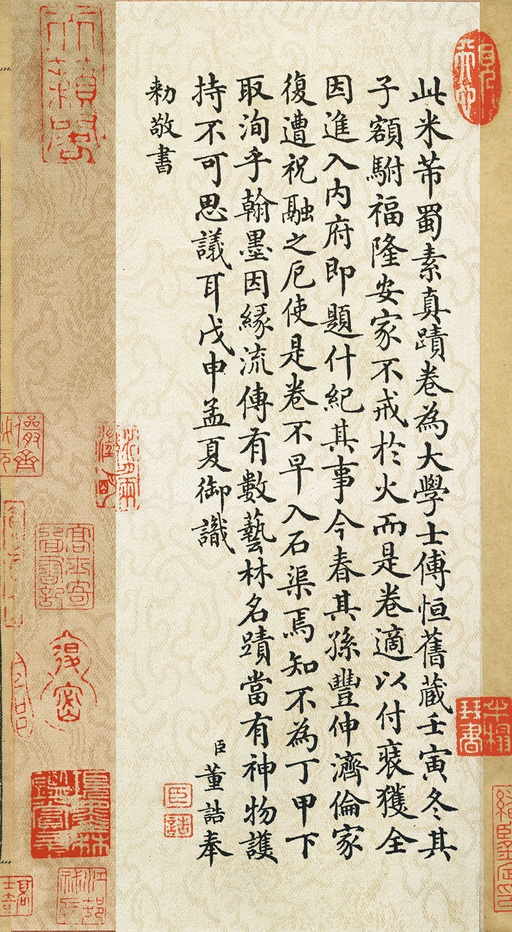 此米芾蜀素真蹟卷為大學士傅恒舊蔵壬寅冬其
子額駙福隆安家不戒於火而是卷適以付裱獲全
因進入内府即題什紀其事今春其孫豐伸濟倫家
復遭祝融之厄使是卷不早入石渠焉知不為丁甲下
取洵乎翰墨因緣流傳有數藝林名蹟當有神物護
持不可思議耳戊申孟夏御識
臣董誥奉
勅敬書